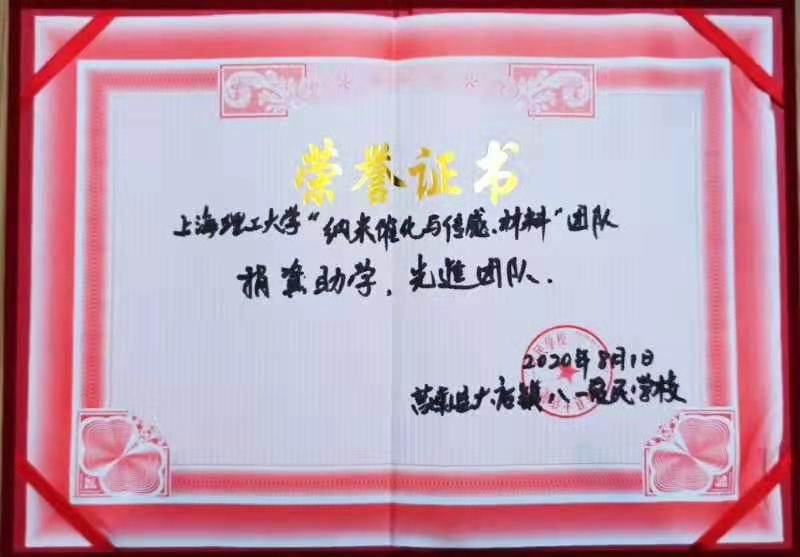 荣誉证书
上海理工大学“纳米催化与传感材料”团队
捐资助学，先进团队.
2020年8月1日
莒南县大店镇八一居民学校